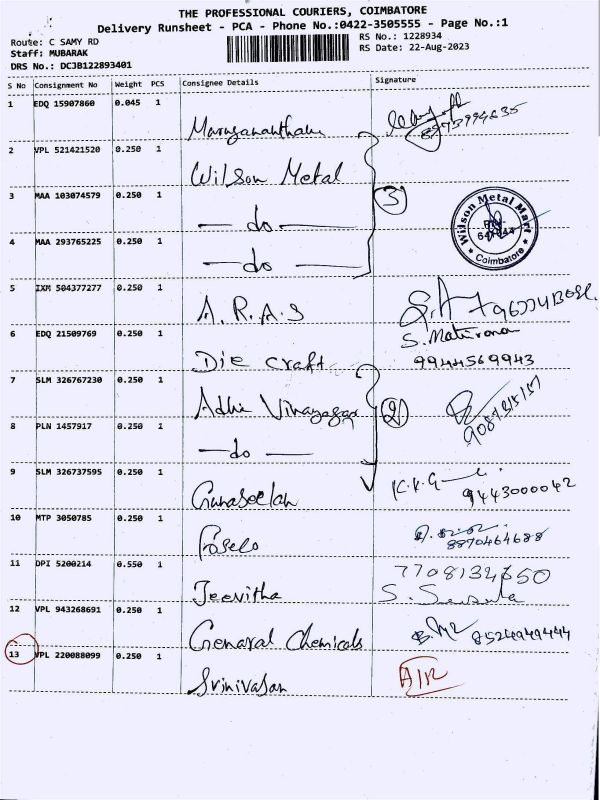 THE PROFESSIONAL COURIERS, COIMBATORE
Delivery Runsheet - PCA - Phone No.:0422-3505555 - Page No.:1
Route: C SAMY RD
RS No.: 1228934
Staff: MUBARAK
RS Date: 22-Aug-2023
DRS No.: DCJB122893401
S No Consignment No Weight PCS Consignee Details Signature
1 EDQ 15907860 0.045 1
Muruganantham
2 VPL 521421520 0.250 1
Wilson Metal
3 MAA 103074579 0.250 1
— do —
3
Wilson Metal Mart
Coimbatore
4 MAA 293765225 0.250 1
— do —
5 IXM 504377277 0.250 1
A.R.A.S
6 EDQ 21509769 0.250 1
Die craft
9944569943
7 SLM 326767230 0.250 1
Adhi Vinayagar
2
8 PLN 1457917 0.250 1
— do —
9 SLM 326737595 0.250 1
Gunaseelan
K.K.G
9443000042
10 MTP 3050785 0.250 1
8870464688
11 DPI 5200214 0.550 1
Jeevitha
7708134650
12 VPL 943268691 0.250 1
Genaral Chemicals
8524949444
13 VPL 220088099 0.250 1
Srinivasan
AIR